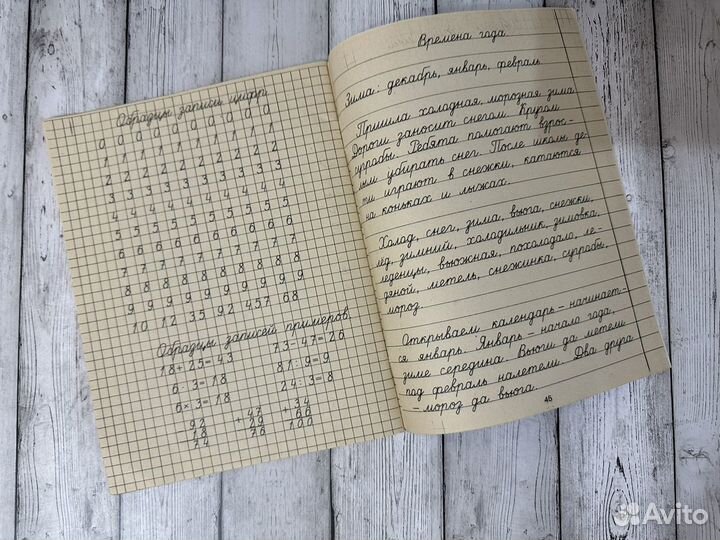 Образцы записи цифр
0 0 0 0 0 0 0 0 0 0
1 1 1 1 1 1 1 1 1 1
2 2 2 2 2 2 2 2 2 2
3 3 3 3 3 3 3 3 3 3
4 4 4 4 4 4 4 4 4 4
5 5 5 5 5 5 5 5 5 5
6 6 6 6 6 6 6 6 6 6
7 7 7 7 7 7 7 7 7 7
8 8 8 8 8 8 8 8 8 8
9 9 9 9 9 9 9 9 9 9
10 12 35 92 457 68
Образцы записей примеров
18+25=43 73-47=26
6:3=18 81:9=9
6×3=18 24:3=8
92 +47 +34
18 29 66
24 76 100
Времена года
Зима: декабрь, январь, февраль
Пришла холодная, морозная зима.
Дороги заносит снегом. Кругом
сугробы. Ребята помогают взрос-
лым убирать снег. После школы де-
ти играют в снежки, катаются
на коньках и лыжах.
Холод, снег, зима, вьюга, снежки,
лёд, зимний, холодильник, зимовка,
леденцы, вьюжная, похолодало, ле-
дяной, метель, снежинка, сугробы,
мороз.
Открываем календарь – начинает-
ся январь. Январь – начало года,
зиме середина. Вьюги да метели
под февраль налетели. Два друга
– мороз да вьюга.
45
Avito